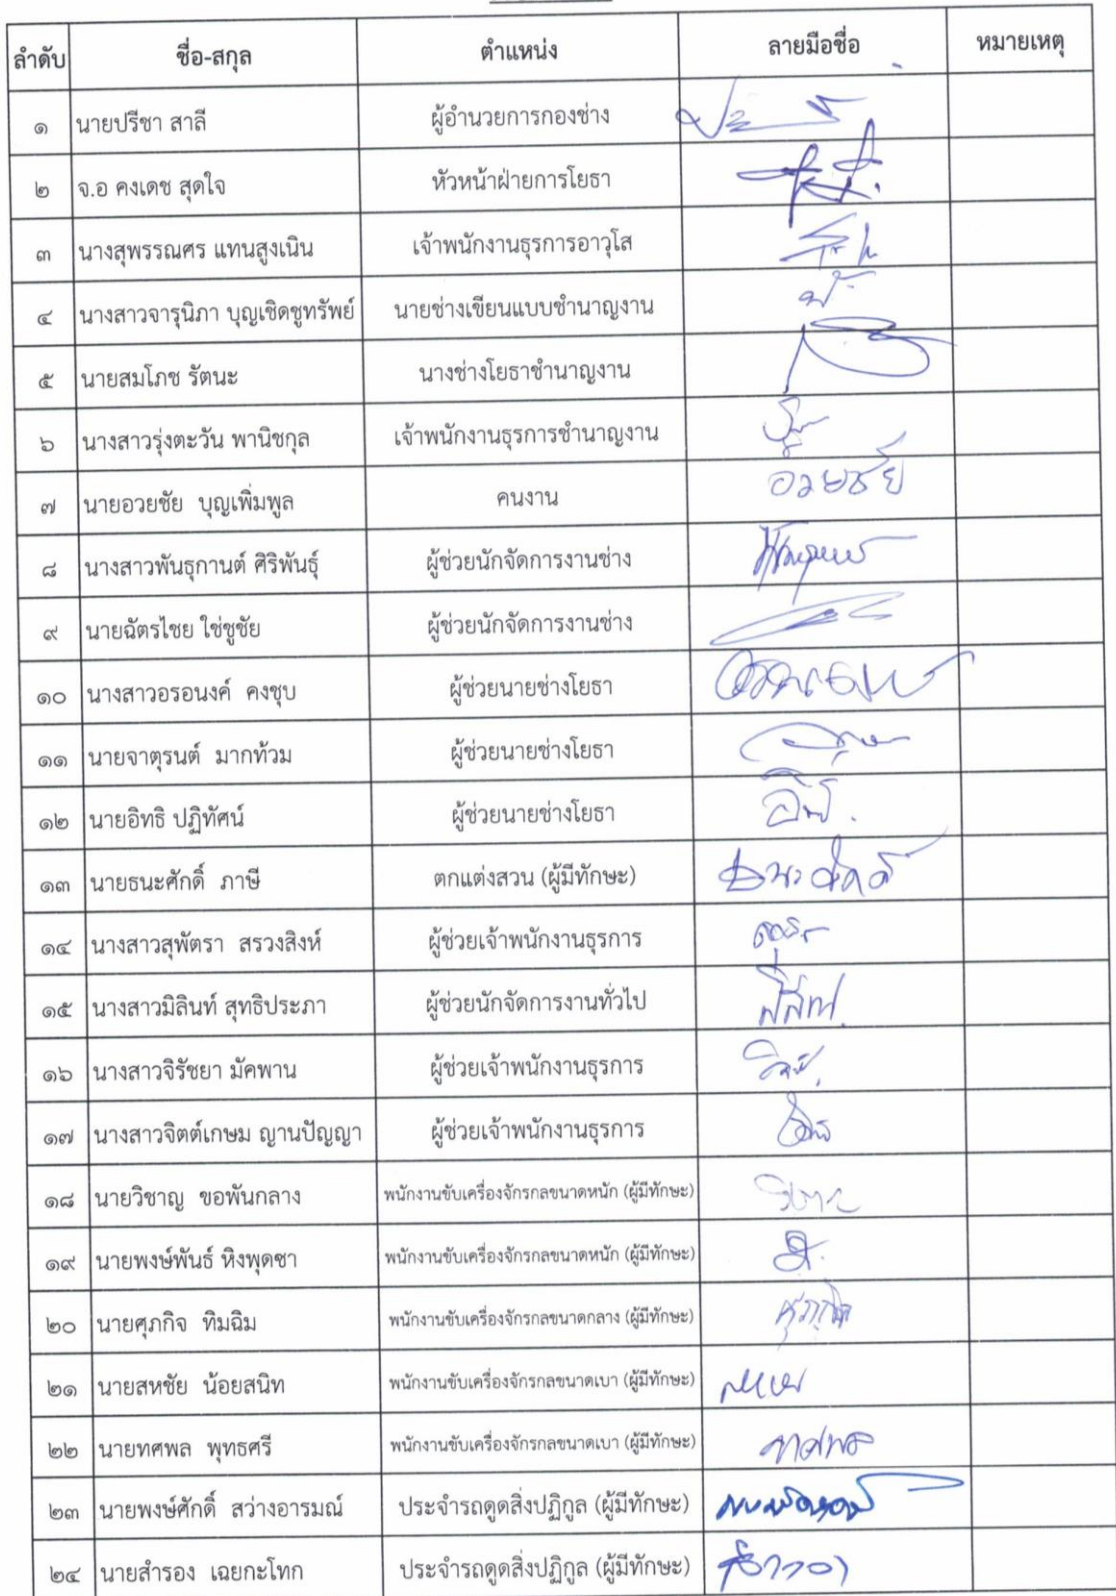 ลำดับ ชื่อ-สกุล ตำแหน่ง ลายมือชื่อ หมายเหตุ
๑ นายปรีชา สาลี ผู้อำนวยการกองช่าง
๒ จ.อ คงเดช สุดใจ หัวหน้าฝ่ายการโยธา
๓ นางสุพรรณศร แทนสูงเนิน เจ้าพนักงานธุรการอาวุโส
๔ นางสาวจารุนิภา บุญเชิดชูทรัพย์ นายช่างเขียนแบบชำนาญงาน
๕ นายสมโภช รัตนะ นางช่างโยธาชำนาญงาน
๖ นางสาวรุ่งตะวัน พานิชกุล เจ้าพนักงานธุรการชำนาญงาน
๗ นายอวยชัย บุญเพิ่มพูล คนงาน อวยชัย
๘ นางสาวพันธุกานต์ ศิริพันธุ์ ผู้ช่วยนักจัดการงานช่าง
๙ นายฉัตรไชย ใช่ชูชัย ผู้ช่วยนักจัดการงานช่าง
๑๐ นางสาวอรอนงค์ คงชุบ ผู้ช่วยนายช่างโยธา
๑๑ นายจาตุรนต์ มากท้วม ผู้ช่วยนายช่างโยธา
๑๒ นายอิทธิ ปฏิทัศน์ ผู้ช่วยนายช่างโยธา
๑๓ นายธนะศักดิ์ ภาษี ตกแต่งสวน (ผู้มีทักษะ) ธนะศักดิ์
๑๔ นางสาวสุพัตรา สรวงสิงห์ ผู้ช่วยเจ้าพนักงานธุรการ
๑๕ นางสาวมิลินท์ สุทธิประภา ผู้ช่วยนักจัดการงานทั่วไป
๑๖ นางสาวจิรัชยา มัคพาน ผู้ช่วยเจ้าพนักงานธุรการ
๑๗ นางสาวจิตต์เกษม ญานปัญญา ผู้ช่วยเจ้าพนักงานธุรการ
๑๘ นายวิชาญ ขอพันกลาง พนักงานขับเครื่องจักรกลขนาดหนัก (ผู้มีทักษะ)
๑๙ นายพงษ์พันธ์ หิงพุดซา พนักงานขับเครื่องจักรกลขนาดหนัก (ผู้มีทักษะ)
๒๐ นายศุภกิจ ทิมฉิม พนักงานขับเครื่องจักรกลขนาดกลาง (ผู้มีทักษะ) ศุภกิจ
๒๑ นายสหชัย น้อยสนิท พนักงานขับเครื่องจักรกลขนาดเบา (ผู้มีทักษะ)
๒๒ นายทศพล พุทธศรี พนักงานขับเครื่องจักรกลขนาดเบา (ผู้มีทักษะ) ทศพล
๒๓ นายพงษ์ศักดิ์ สว่างอารมณ์ ประจำรถดูดสิ่งปฏิกูล (ผู้มีทักษะ)
๒๔ นายสำรอง เฉยกะโทก ประจำรถดูดสิ่งปฏิกูล (ผู้มีทักษะ) สำรอง